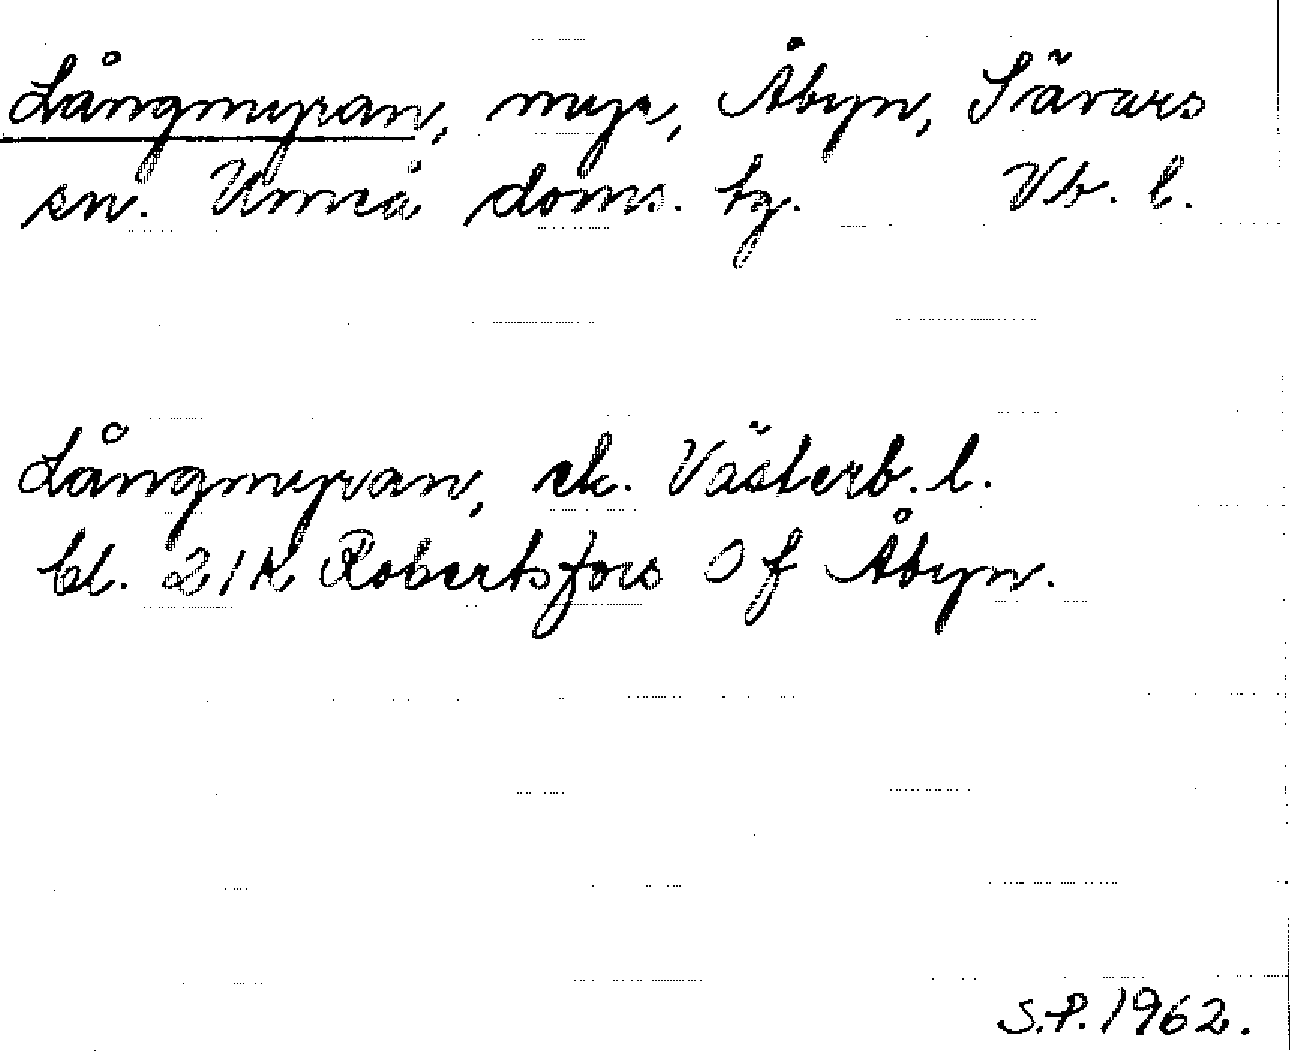 Långmyran, myr, Åbyn, Sävars
sn. Umeå doms. tg. Vb. l.
Långmyran, ek. Västerb. l.
bl. 21K Robertsfors Of Åbyn.
S.P. 1962.